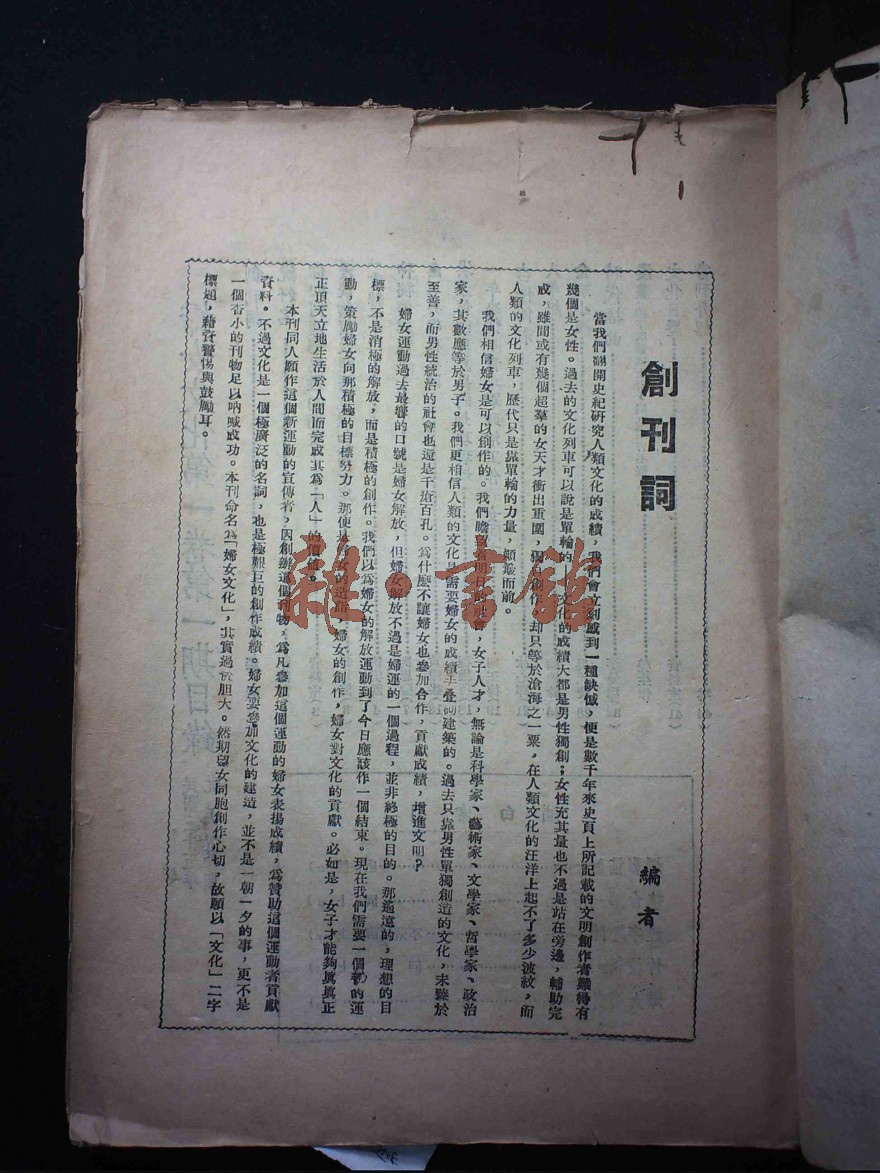 創刊詞
編者
當我們翻開史紀研究人類文化的成績，我們會立刻感到一種缺憾，便是數千年來史頁上所記載的文明創作者難得有
幾個是女性。過去的文化列車可以說是單輪的——文化的成績大都是男性獨創；女性充其量也不過是站在旁邊，輔助完
成，雖間或有幾個超羣的女天才衝出重圍，獨自創作，却只等於滄海之一粟，在人類文化的汪洋上起不了多少波紋，而
人類的文化列車，歷代只是靠單輪的力量，顛簸而前。
我們相信婦女是可以創作的。我們瞻望着明日的社會，女子人才，無論是科學家、藝術家、文學家、哲學家、政治
家，其數應等於男子。我們更相信人類的文化是需要婦女的成績去疊詞建築的。過去只靠男性單獨創造的文化，未臻於
至善，而男性統治的社會也還是千瘡百孔。爲什麽不讓婦女也參加合作，貢獻成績，增進文明？
婦女運動過去最響的口號是婦女解放，但婦女解放不過是婦運的一個過程，並非終極的目的。那遙遠的，理想的目
標，不是消極的解放，而是積極的創作。我們以爲婦女的解放運動到了今日應該作一個結束。現在我們需要一個新的運
動，策勵婦女向那積極的目標努力。那便是婦女的造詣，婦女的創作，婦女對文化的貢獻。必如是，女子才能夠眞眞正
正頂天立地生活於人間而完成其爲「人」的價値。
本刊同人願作這個新運動的宣傳者，因創辦這個刊物，爲凡參加這個運動的婦女表揚成績，爲贊助這個運動者貢獻
資料。不過文化是一個極廣泛的名詞，也是極艱巨的創作成績。婦女要參加文化的建造，並不是一朝一夕的事，更不是
一個杳小的刊物足以吶喊成功。本刊命名爲「婦女文化」，其實過於胆大。然期望女同胞創作心切，故願以「文化」二字
標題，藉資警惕與鼓勵耳。
雜·書館